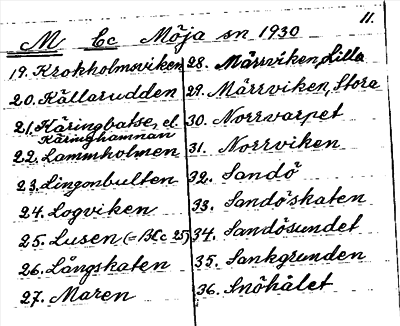 11.
M Ec Möja sn 1930
19. Krokholmsviken
20. Källarudden
21. Käringbatse, el.
Käringhamnan
22. Lammholmen
23. Lingonbulten
24. Logviken
25. Lusen (= BEc 25)
26. Långskaten
27. Maren
28. Märrviken, Lilla
29. Märrviken, Stora
30. Norrvarpet
31. Norrviken
32. Sandö
33. Sandöskaten
34. Sandösundet
35. Sankgrunden
36. Snöhålet